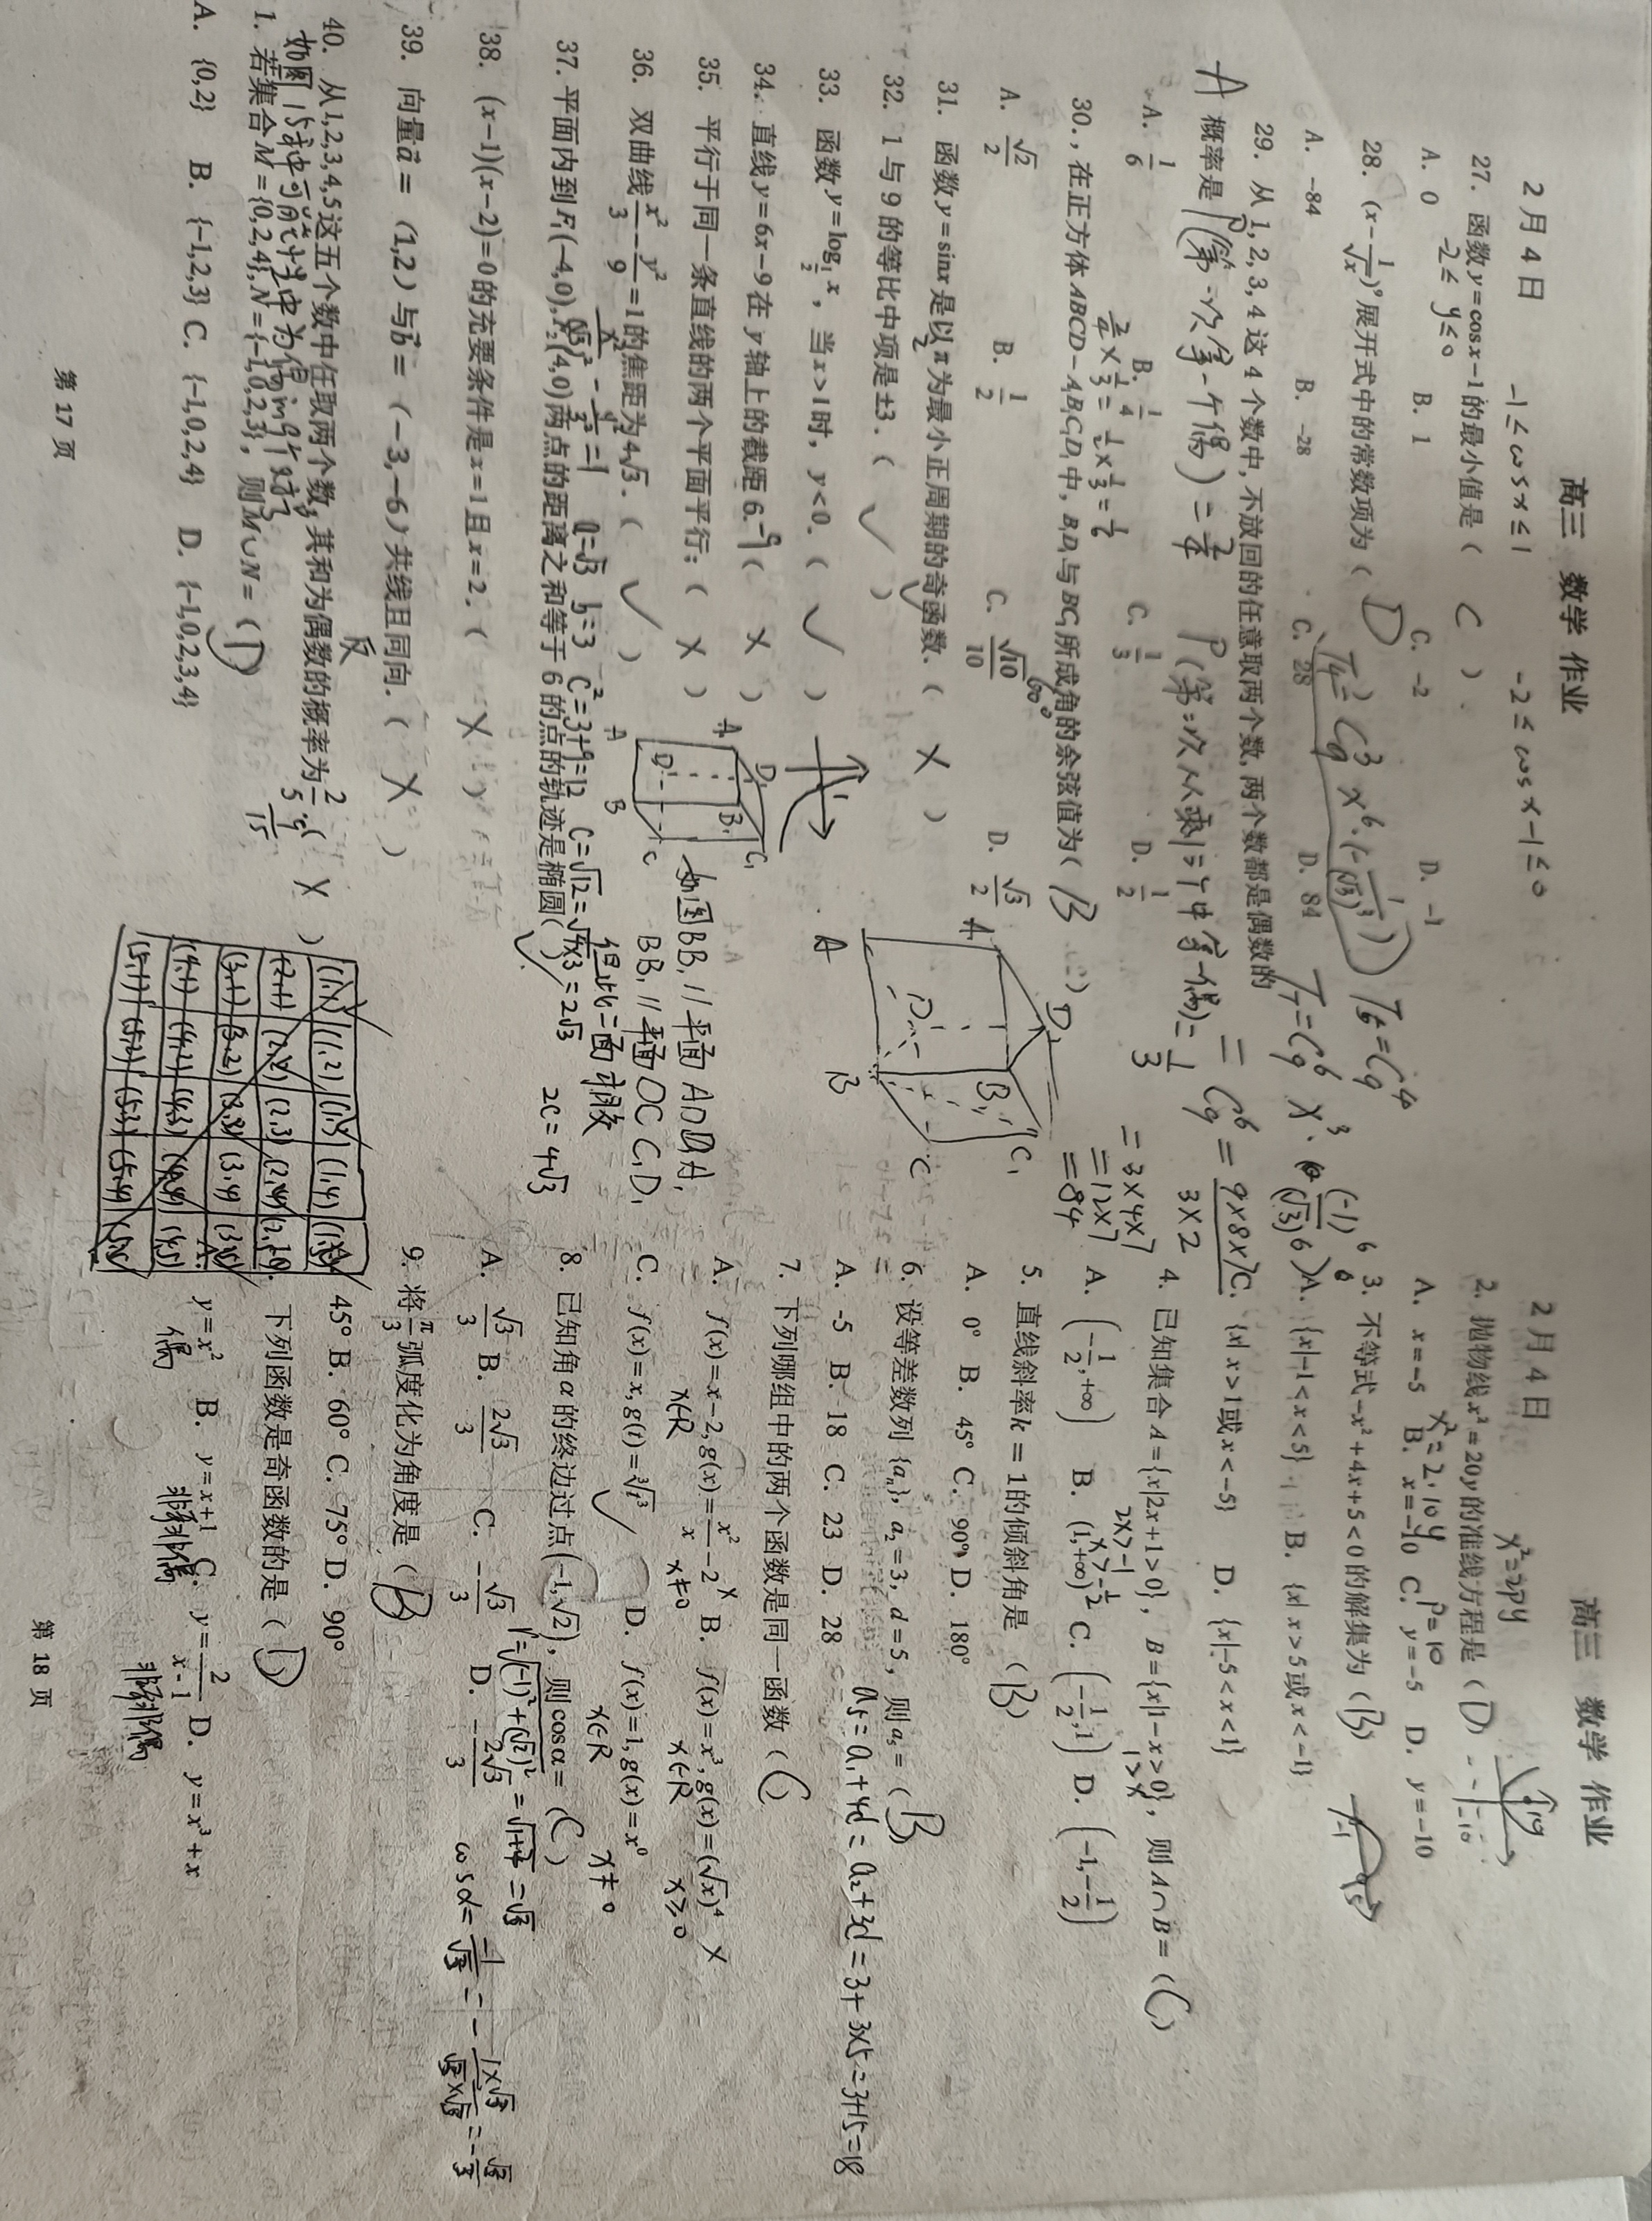 高三 数学 作业
2月4日
-1≤cosx≤1 -2≤cosx-1≤0
27. 函数y=cosx-1的最小值是( C ).
-2≤y≤0
A. 0 B. 1 C. -2 D. -1
28. (x-1/√x)⁹展开式中的常数项为( D )
A. -84 B. -28 C. 28 D. 84
29. 从1,2,3,4这4个数中,不放回的任意取两个数,两个数都是偶数的
概率是
A
A. 1/6 B. 1/4 C. 1/3 D. 1/2
2/4×1/3=1/2×1/3=1/6
30.,在正方体ABCD-A₁B₁C₁D₁中,B₁D₁与BC₁所成角的余弦值为( B )
60°
A. √2/2 B. 1/2 C. √10/10 D. √3/2
31. 函数y=sinx是以π为最小正周期的奇函数、( X )
2
32. 1与9的等比中项是±3.( √ )
33. 函数y=log_{1/2}x,当x>1时,y<0.( √ )
34. 直线y=6x-9在y轴上的截距6.-9( X )
35. 平行于同一条直线的两个平面平行;( X )
如图BB₁//平面ADD₁A₁
BB₁//平面DCC₁D₁
但此二面相交
36. 双曲线x²/3-y²/9=1的焦距为4√3.( √ )
a=√3 b=3 C²=3+9=12 C=√12=√4×3=2√3
2C=4√3
37. 平面内到F₁(-4,0),F₂(4,0)两点的距离之和等于6的点的轨迹是椭圆( √ )
38. (x-1)(x-2)=0的充要条件是x=1且x=2.( X )
39. 向量a⃗=(1,2)与b⃗=(-3,-6)共线且同向.( X )
反
40. 从1,2,3,4,5这五个数中任取两个数,其和为偶数的概率为2/5.( X )
1. 若集合M={0,2,4},N={-1,0,2,3},则M∪N=( D )
A. {0,2} B. {-1,2,3} C. {-1,0,2,4} D. {-1,0,2,3,4}
第 17 页
高三 数学 作业
2月4日
x²=2py
2. 抛物线x²=20y的准线方程是( D )
x²=2·10y P=10
A. x=-5 B. x=-10 C. y=-5 D. y=-10
3. 不等式-x²+4x+5<0的解集为( B )
A. {x|-1<x<5} B. {x|x>5或x<-1}
C. {x|x>1或x<-5} D. {x|-5<x<1}
4. 已知集合A={x|2x+1>0},B={x|1-x>0},则A∩B=( C )
2x>-1 1>x
x>-1/2
A. (-1/2,+∞) B. (1,+∞) C. (-1/2,1) D. (-1,-1/2)
5. 直线斜率k=1的倾斜角是( B )
A. 0° B. 45° C. 90° D. 180°
6. 设等差数列{aₙ},a₂=3,d=5,则a₅=( B )
A. -5 B. 18 C. 23 D. 28
a₅=a₁+4d=a₂+3d=3+3×5=3+15=18
7. 下列哪组中的两个函数是同一函数( C )
A. f(x)=x-2,g(x)=x²/x-2 X B. f(x)=x³,g(x)=(√x)⁴ X
x∈R x≠0 x∈R x≥0
C. f(x)=x,g(t)=∛t³ √ D. f(x)=1,g(x)=x⁰
x∈R x≠0
8. 已知角α的终边过点(-1,√2),则cosα=( C )
r=√(-1)²+(√2)²=√1+2=√3
A. √3/3 B. 2√3/3 C. -√3/3 D. -2√3/3
cosα=-1/√3=-1×√3/√3×√3=-√3/3
9. 将π/3弧度化为角度是( B )
45° B. 60° C. 75° D. 90°
下列函数是奇函数的是( D )
A. y=x² B. y=x+1 C. y=2/(x-1) D. y=x³+x
偶 非奇非偶 非奇非偶
第 18 页